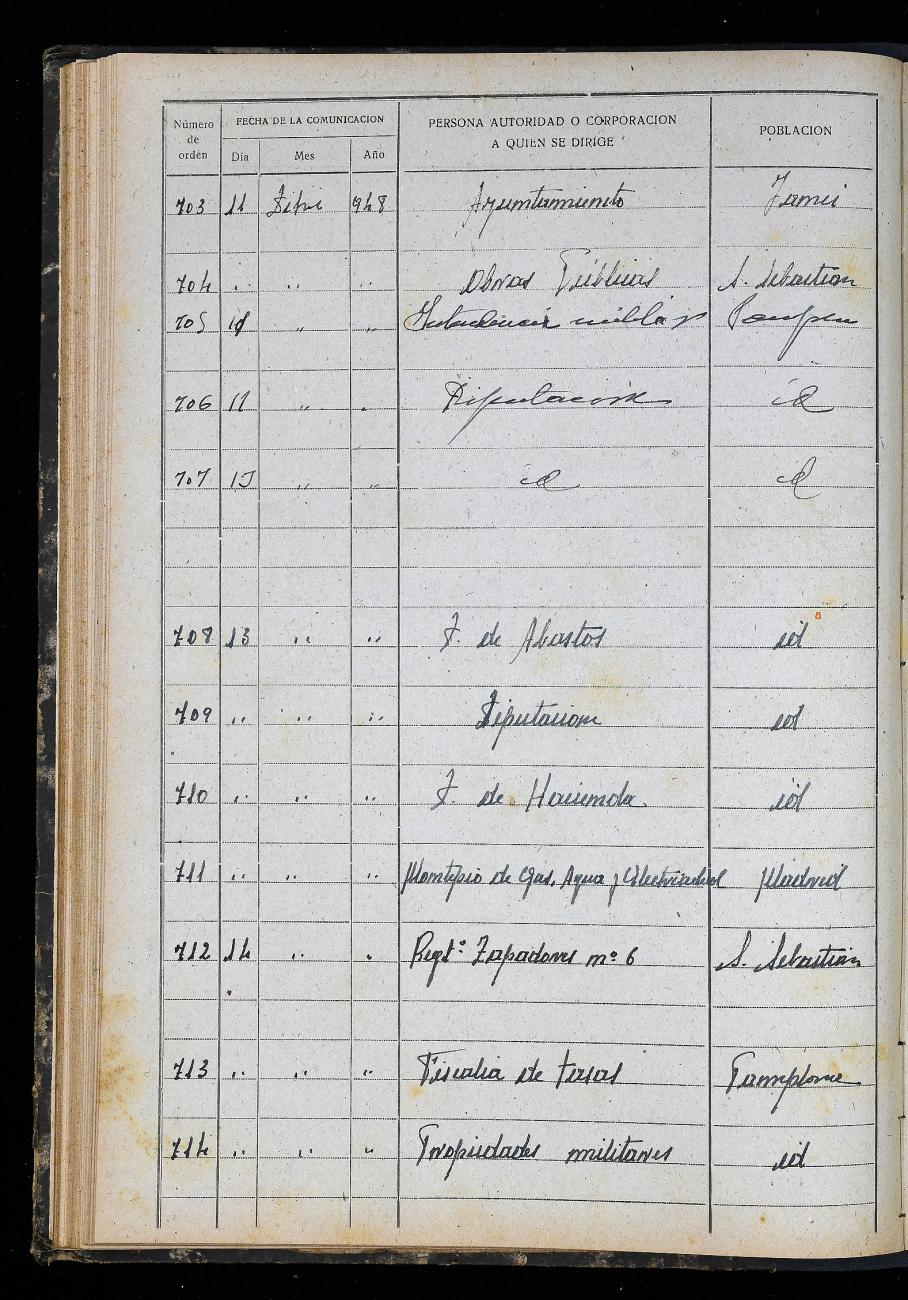 Número de orden FECHA DE LA COMUNICACION PERSONA AUTORIDAD O CORPORACION A QUIEN SE DIRIGE POBLACION
Día Mes Año
703 11 948 Ayuntamiento
704 .. .. .. Obras Públicas S. Sebastian
705 .. .. militar
706 11 .. . Diputacion id
707 13 .. .. id id
708 13 .. .. J. de Abastos id
709 .. .. .. Diputacion id
710 .. .. .. J. de Hacienda. id
711 .. .. .. Montepio de Gas, Agua y Electricidad Madrid
712 14 .. . Regtº Zapadores nº 6 S. Sebastian
713 .. .. .. Fiscalia de tasas Pamplona
714 .. .. .. Propiedades militares id